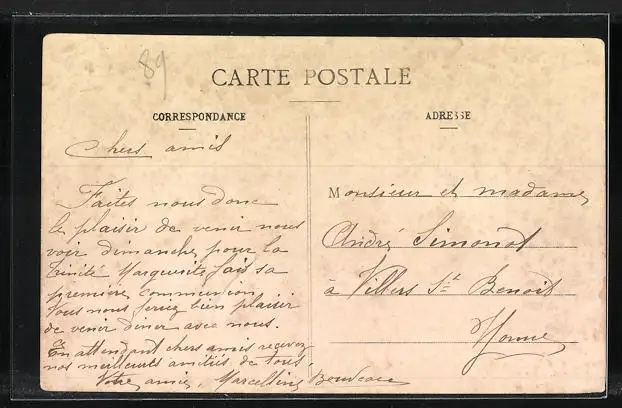 89
CARTE POSTALE
CORRESPONDANCE
Chers amis
Faites nous donc
le plaisir de venir nous
voir dimanche, pour la
trinité Marguerite fais sa
première communion
Vous nous feriez bien plaisir
de venir diner avec nous.
En attendant chers amis recevez
nos meilleures amitiés de tous.
Votre amie, Marcelline
ADRESSE
Monsieur et madame,
André Simonot
à Villiers St Benoit
Yonne